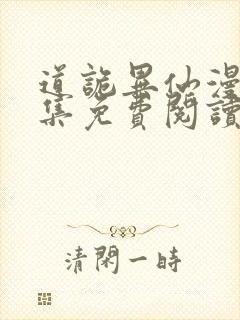 道詭異仙漫
集免費閱讀
清閑一時